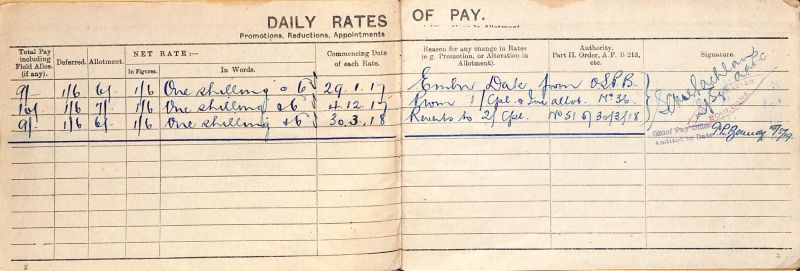 DAILY RATES OF PAY.
Promotions, Reductions, Appointments
Total Pay including Field Alloc. (if any).
Deferred.
Allotment.
NET RATE:—
In Figures.
In Words.
Commencing Date of each Rate.
Reason for any change in Rates (e.g. Promotion, or Alteration in Allotment).
Authority. Part II. Order, A.F. B 213, etc.
Signature.
9/- 1/6 6/- 1/6 One shilling & 6 29.1.17 Embn Date from O.S.P.B.
10/- 1/6 7/- 1/6 One shilling & 6 4.12.17 Prom 1/Cpl. & Inc allot. No 36.
9/- 1/6 6/- 1/6 One shilling & 6 30.3.18 Reverts to 2/Cpl. No 51 of 30/3/18
Chief Pay Office
Audited to Date
2
3